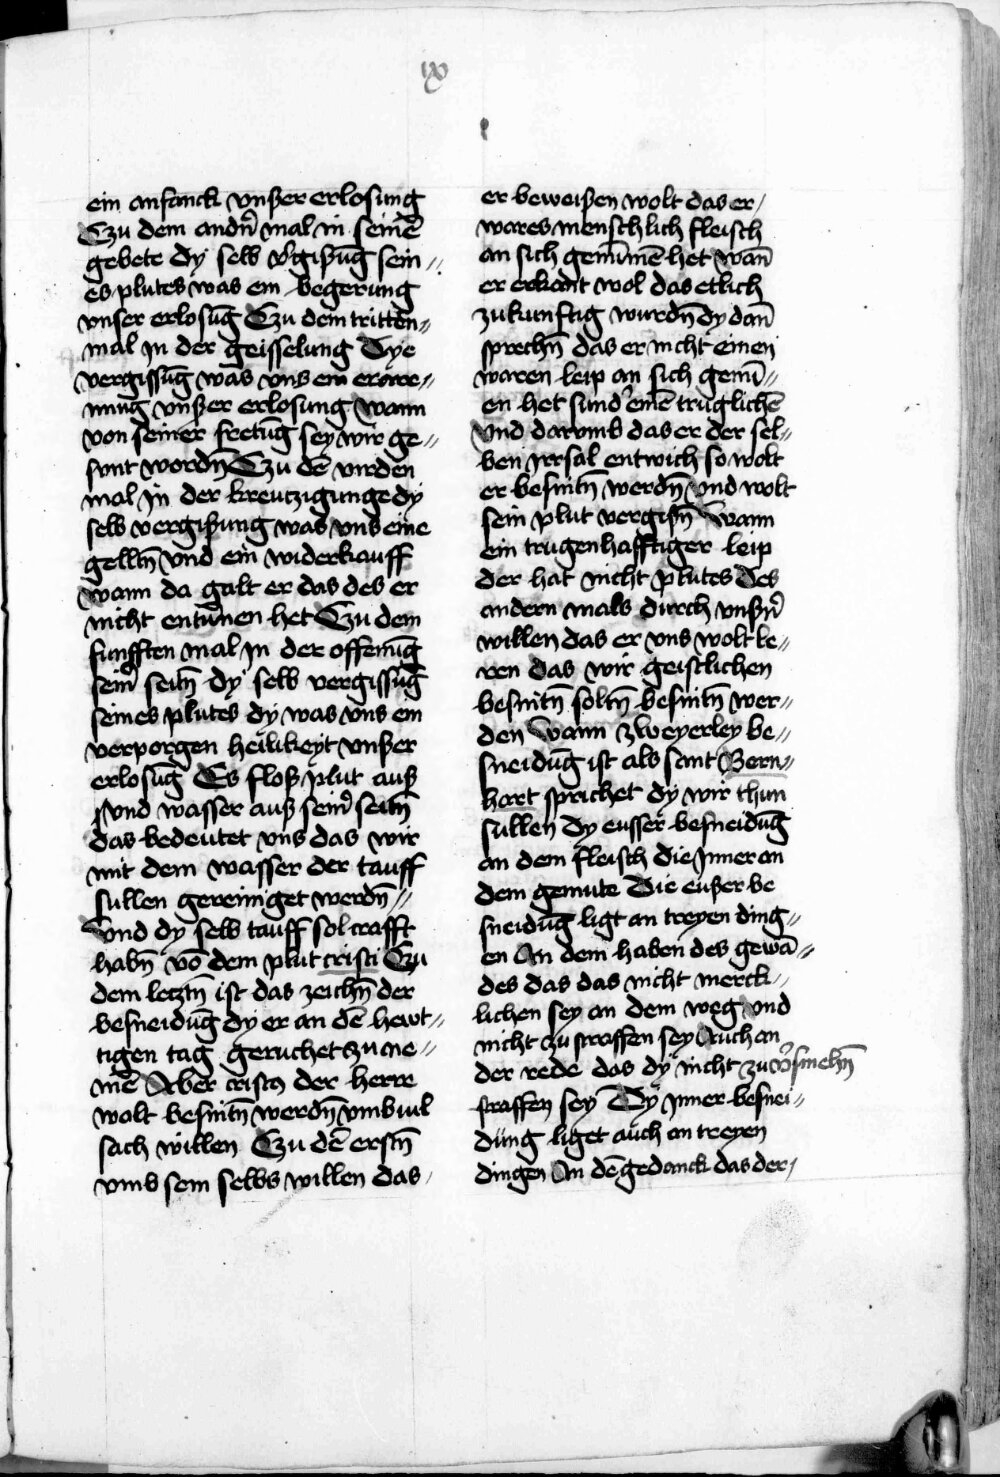 ix
ein anfanck vnßer erlosung
Czu dem andn̄ mal in seinē
gebete dy selb v̉gißūg sein //
es plutes was ein begerung
vnser erlosūg Czu dem tritten //
mal jn der geisselung Dye
vergissūg was vns ein erwer //
nung vnßer erlosung wann
von seiner fretūg sey wir ge //
sunt wordn̄ Czu dē virden
mal jn der kreutzigunge dy
selb vergißung was vns eine
gelltn̄ vnd ein widerkauff
wann da galt er das des er
nicht entūnen het Czu dem
funfften mal jn der offenūg
sein̉ seitn̄ dy selb vergissūg
seines plutes dy was vns ein
verporgen heilikeyt vnßer
erlosūg Es floß plut auß
vnd wasser auß sein̉ seitn̄
das bedeutet vns das wir
mit dem wasser der tauff
sullen gereiniget werdn̄ //
Vnd dy selb tauff sol crafft
habn̄ vō dem plut cristi Czu
dem letztn̄ ist das zeichn̄ der
besneidūg dy er an dē hewt //
tigen tag geruchet zu ne //
mē Aber cristꝯ der herre
wolt besnitn̄ werdn̄ vmb vil
sach willen Czu dē erstn̄
vmb sein selbs willen das /
er beweißen wolt das er /
wares menschlich fleisch
an sich genūmē het wān
er erkant wol das etlich
zukunftig wurdn̄ dy dān
sprechn̄ das er nicht einen
waren leip an sich genū //
en het sund̉ einē truglichē
Vnd darvmb das er der sel //
ben jrrsal entwich so wolt
er besnitn̄ werdn̄ vnd wolt
sein plut vergißn̄ Wann
ein trugenhafftiger leip
der hat nicht plutes Des
andern mals durch vnßn̉
willen das er vns wolt le //
ren das wir geistlichen
besnitn̄ soltn̄ besnitn̄ wer //
den Wann zweyerley be //
sneidūg ist als sant Bern //
hart sprichet dy wir thun
sullen dy eusser besneidūg
an dem fleisch die jnner an
dem gemute Die eußer be
sneidūg ligt an treyen ding //
en An dem haben des gewā //
des das das nicht merck //
lichen sey an dem weg vnd
nicht zu straffen sey Auch an
der rede das dy nicht zu v̉smehn̄
straffen sey Dy jnner besnei //
dung liget auch an treyen
dingen An dē gedanck das der /